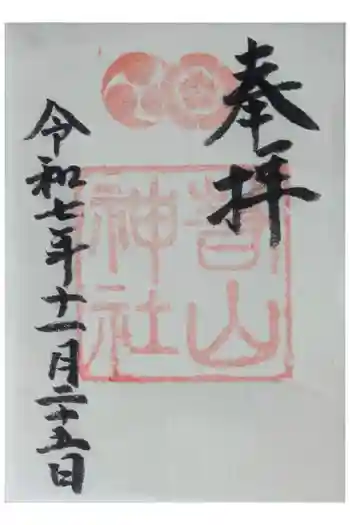 奉拝
山
神社
令和七年十一月二十五日